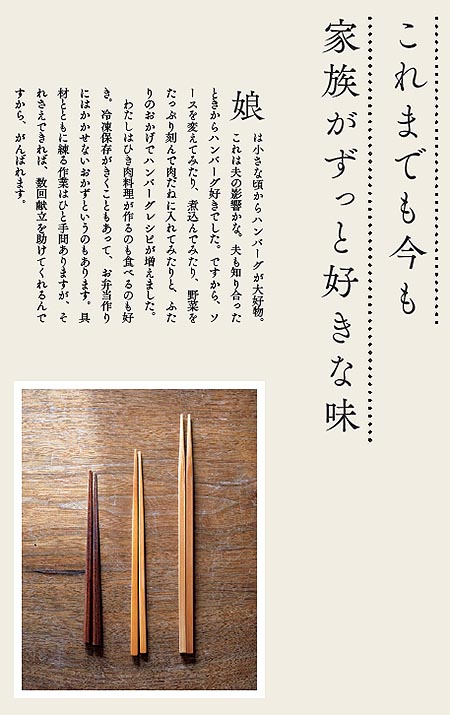 これまでも今も
家族がずっと好きな味
娘は小さな頃からハンバーグが大好物。
これは夫の影響かな。夫も知り合った
ときからハンバーグ好きでした。ですから、ソ
ースを変えてみたり、煮込んでみたり、野菜を
たっぷり刻んで肉だねに入れてみたりと、ふた
りのおかげでハンバーグレシピが増えました。
わたしはひき肉料理が作るのも食べるのも好
き。冷凍保存がきくこともあって、お弁当作り
にはかかせないおかずというのもあります。具
材とともに練る作業はひと手間ありますが、そ
れさえできれば、数回献立を助けてくれるんで
すから、がんばれます。